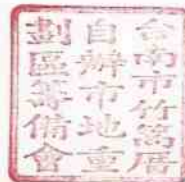 台南市竹篙厝
自辦市地重
劃區籌備會